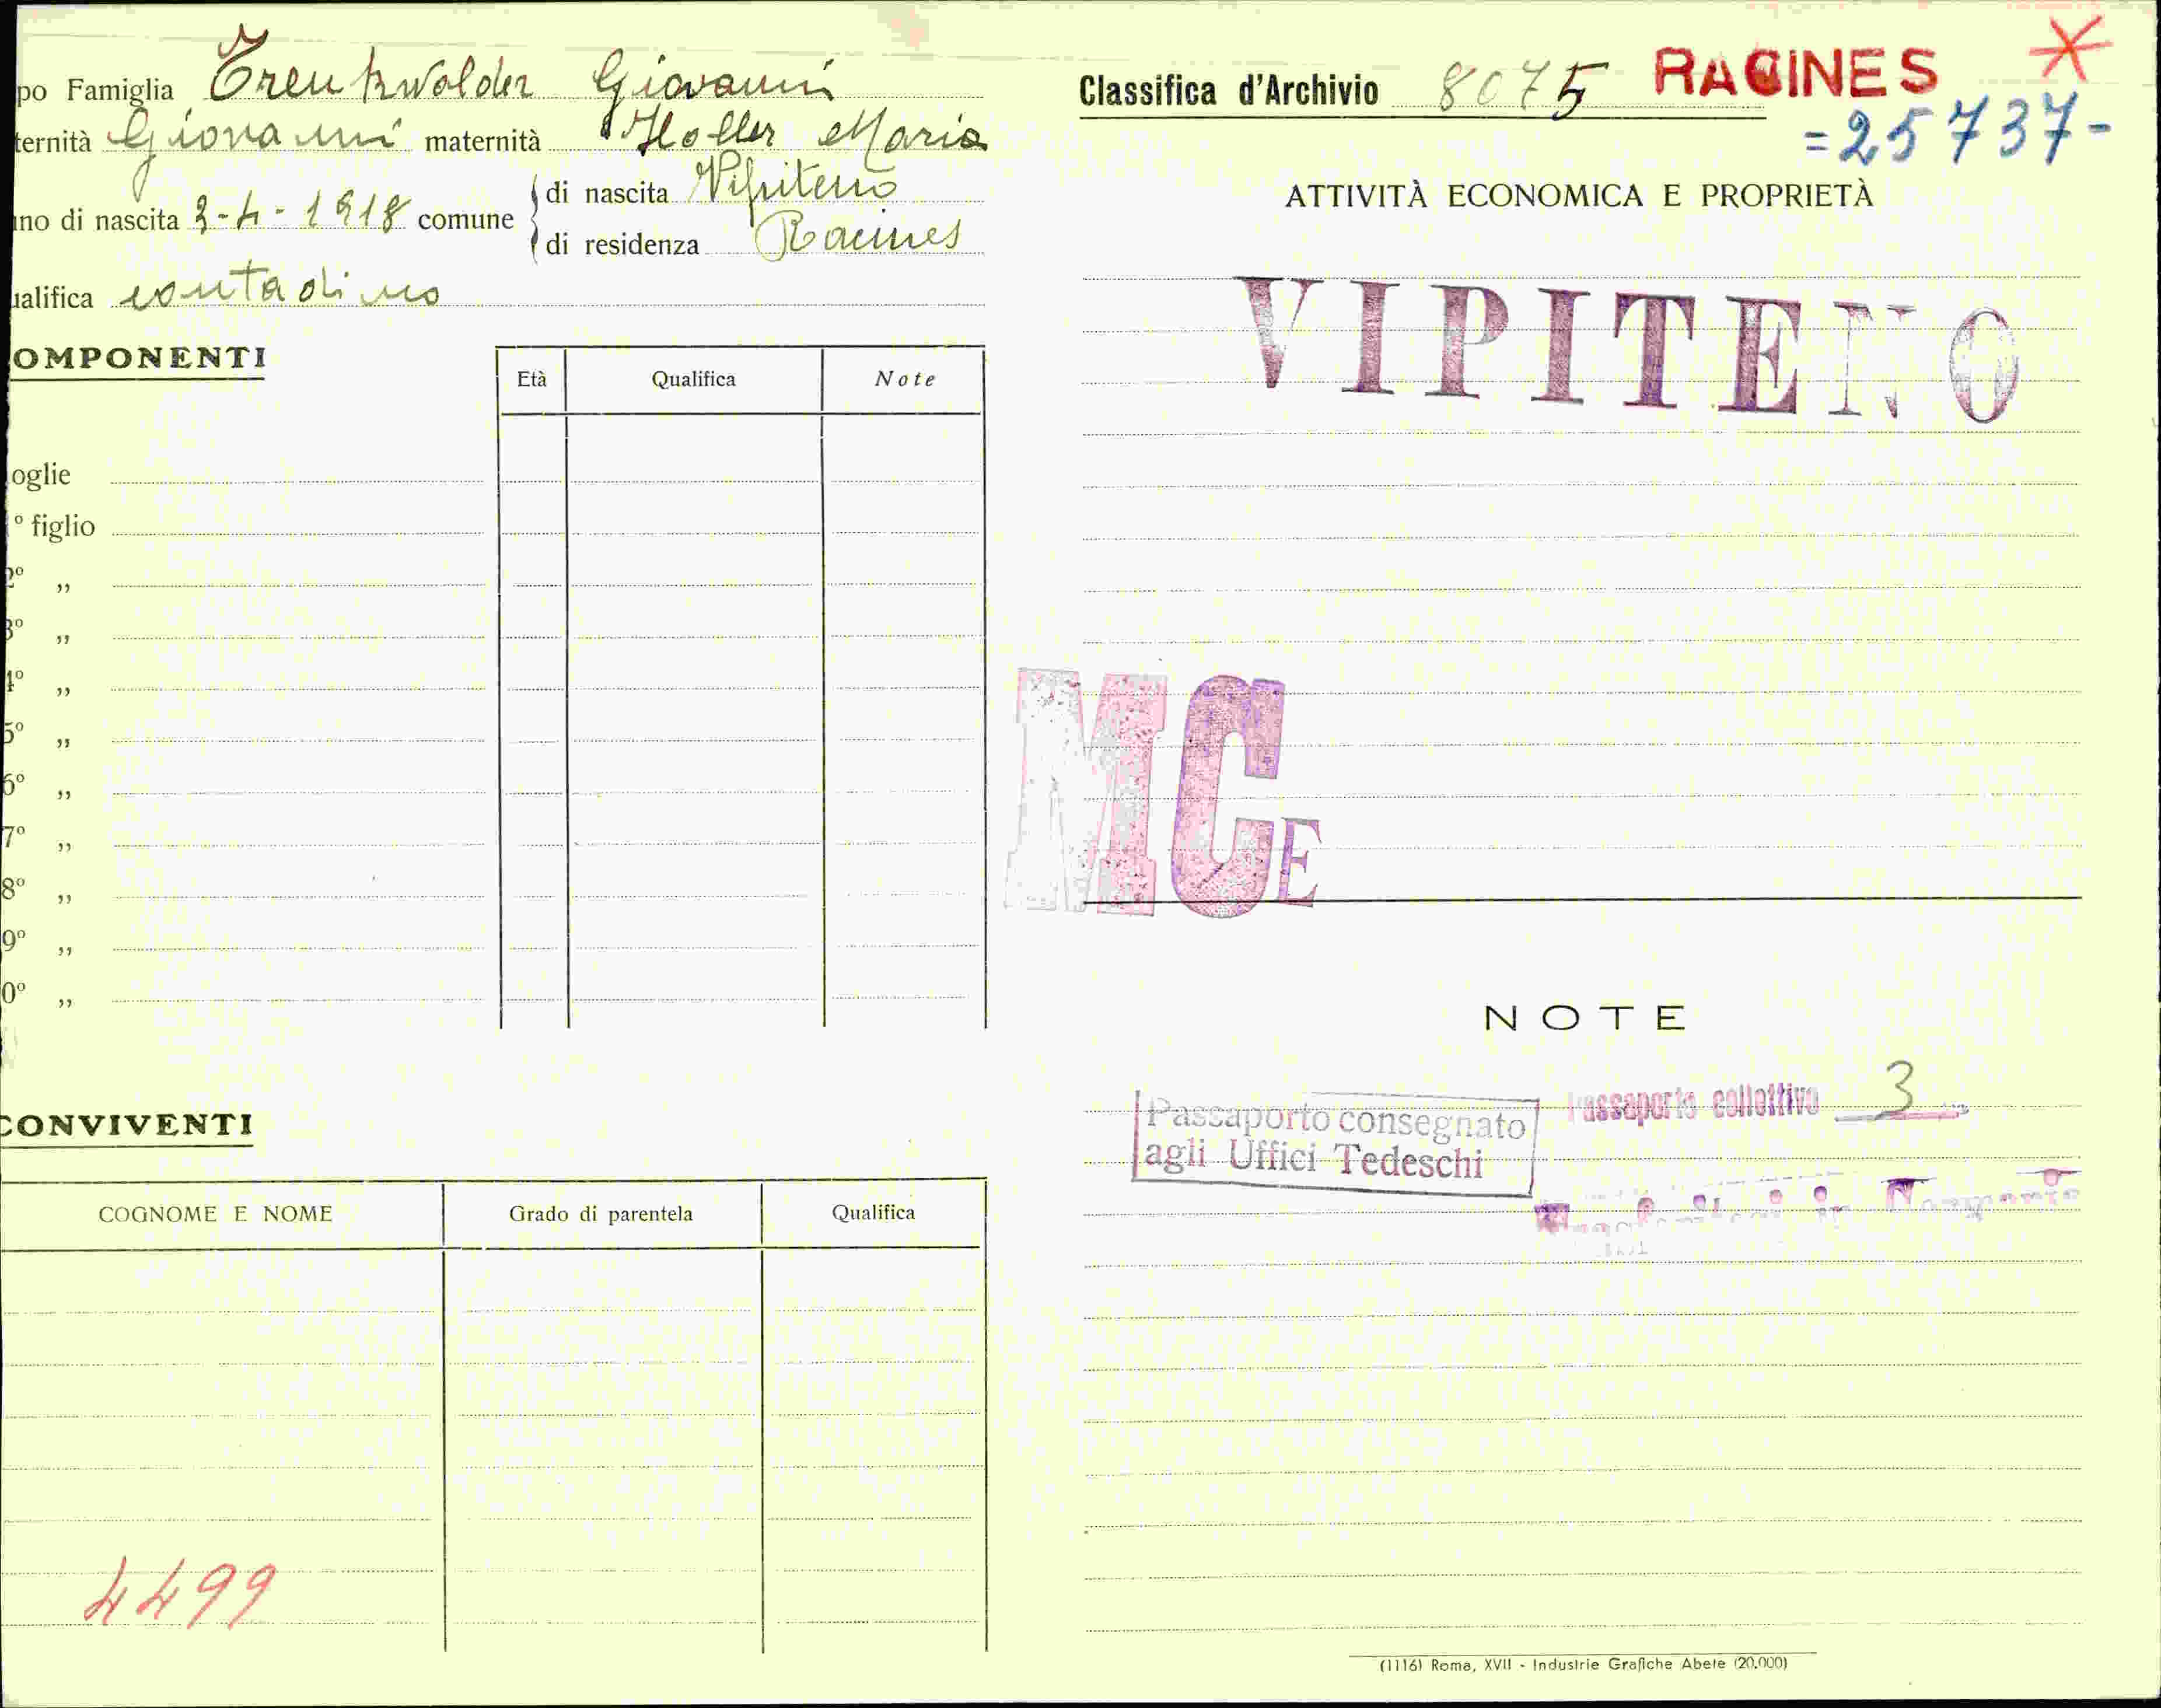 po Famiglia Trenkwalder Giovanni
ternità Giovanni maternità Holler Maria
no di nascita 3-4-1918 comune
di nascita Vipiteno
di residenza Racines
alifica contadino
OMPONENTI
Età Qualifica Note
oglie
° figlio
2° ,,
3° ,,
4° ,,
5° ,,
6° ,,
7° ,,
8° ,,
9° ,,
0° ,,
CONVIVENTI
COGNOME E NOME Grado di parentela Qualifica
4499
Classifica d'Archivio 8075 RACINES
=25737-
ATTIVITÀ ECONOMICA E PROPRIETÀ
VIPITENO
MCE
NOTE
Passaporto consegnato
agli Uffici Tedeschi
Passaporto collettivo 3
in Germania
(1116) Roma, XVII - Industrie Grafiche Abete (20.000)